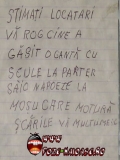 STIMAȚI LOCATARI
VĂ ROG CINE A
GĂSIT O GANTĂ CU
SCULE LA PARTER
SĂ IO NAPOEZE LA
MOȘU CARE MOTURĂ
SCĂRILE VĂ MULTUMESC